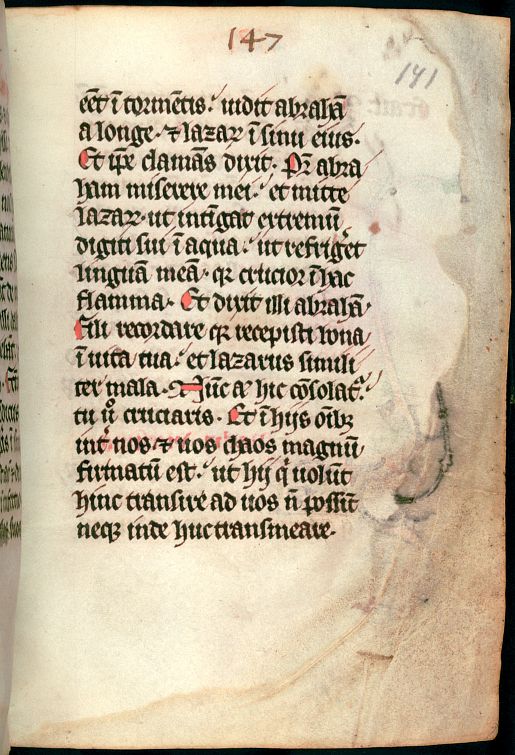 147
141
eēt ī tormētis. uidit abrahā
a longe. ⁊ lazaꝝ ī sinu eius.
Et ip̄e clamās dixit. Pr̄ abra
ham miserere mei. et mitte
lazaꝝ. ut intīgat extremū
digiti sui ī aqua. ut refrig̓et
linguā meā. qꝛ crucior ī hac
flamma. Et dixit illi abrahā.
Fili recordare qꝛ recepisti bona
ī uita tua. et lazarus simili
ter mala. Nūc aͧ hic cōsolat᷑.
tu u̓o cruciaris. Et ī hijs oīb
int̓ nos ⁊ uos chaos magnū
firmatū est. ut hij q̓ uolūt
hinc transire ad uos n̄ possīt
neqꝫ inde huc transmeare.